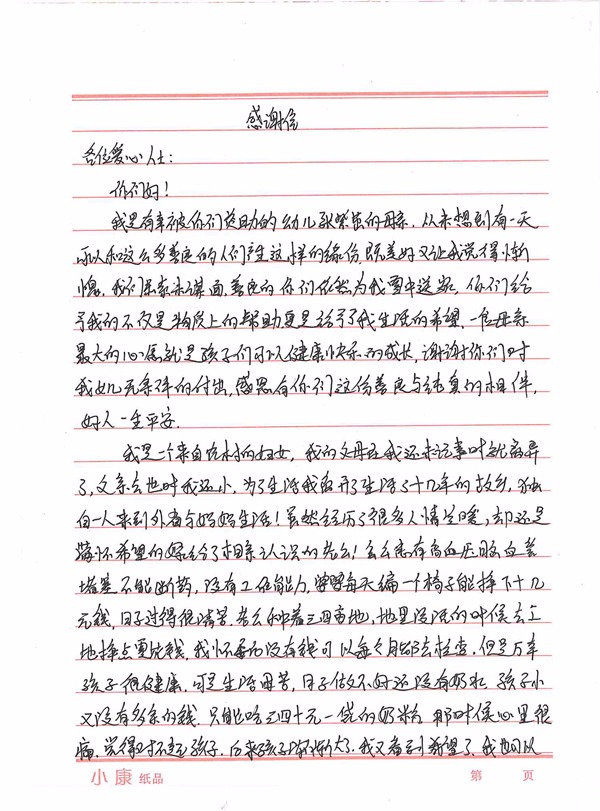 感谢信
各位爱心人士：
你们好！
我是有幸被你们资助的幼儿 的母亲，从未想到有一天
可以和这么多善良的人们产生这样的缘份，既美好又让我觉得惭
愧，我们素未谋面，善良的你们依然为我雪中送炭，你们给
予我的不仅是物质上的帮助更是给予了我生活的希望，一位母亲
最大的心愿就是孩子们可以健康快乐的成长，谢谢你们对
我女儿无条件的付出，感恩有你们这份善良与纯真的相伴，
好人一生平安.
我是一个来自农村的妇女，我的父母在我还未记事时就离异
了，父亲去世时我还小，为了生活我离开了生活了十几年的故乡，独
自一人来到外省与妈妈生活！虽然经历了很多人情冷暖，却还是
满怀希望的嫁给了相亲认识的老公！公公患有高血压脑血管
堵塞不能断药，没有工作能力，婆婆每天编一个椅子能挣下十几
元钱，日子过得很清苦，老公种着三四亩地，地里没活的时候去工
地挣点零花钱，我怀孕而没有钱可以每个月都去检查，但是万幸
孩子很健康，可是生活母苦，月子做不好还没有奶水，孩子小
又没有多余的钱，只能吃三四十元一袋的奶粉，那时候心里很
痛，觉得对不起孩子，后来孩子渐渐大了，我又看到希望了，我也可以
小康纸品 第 页